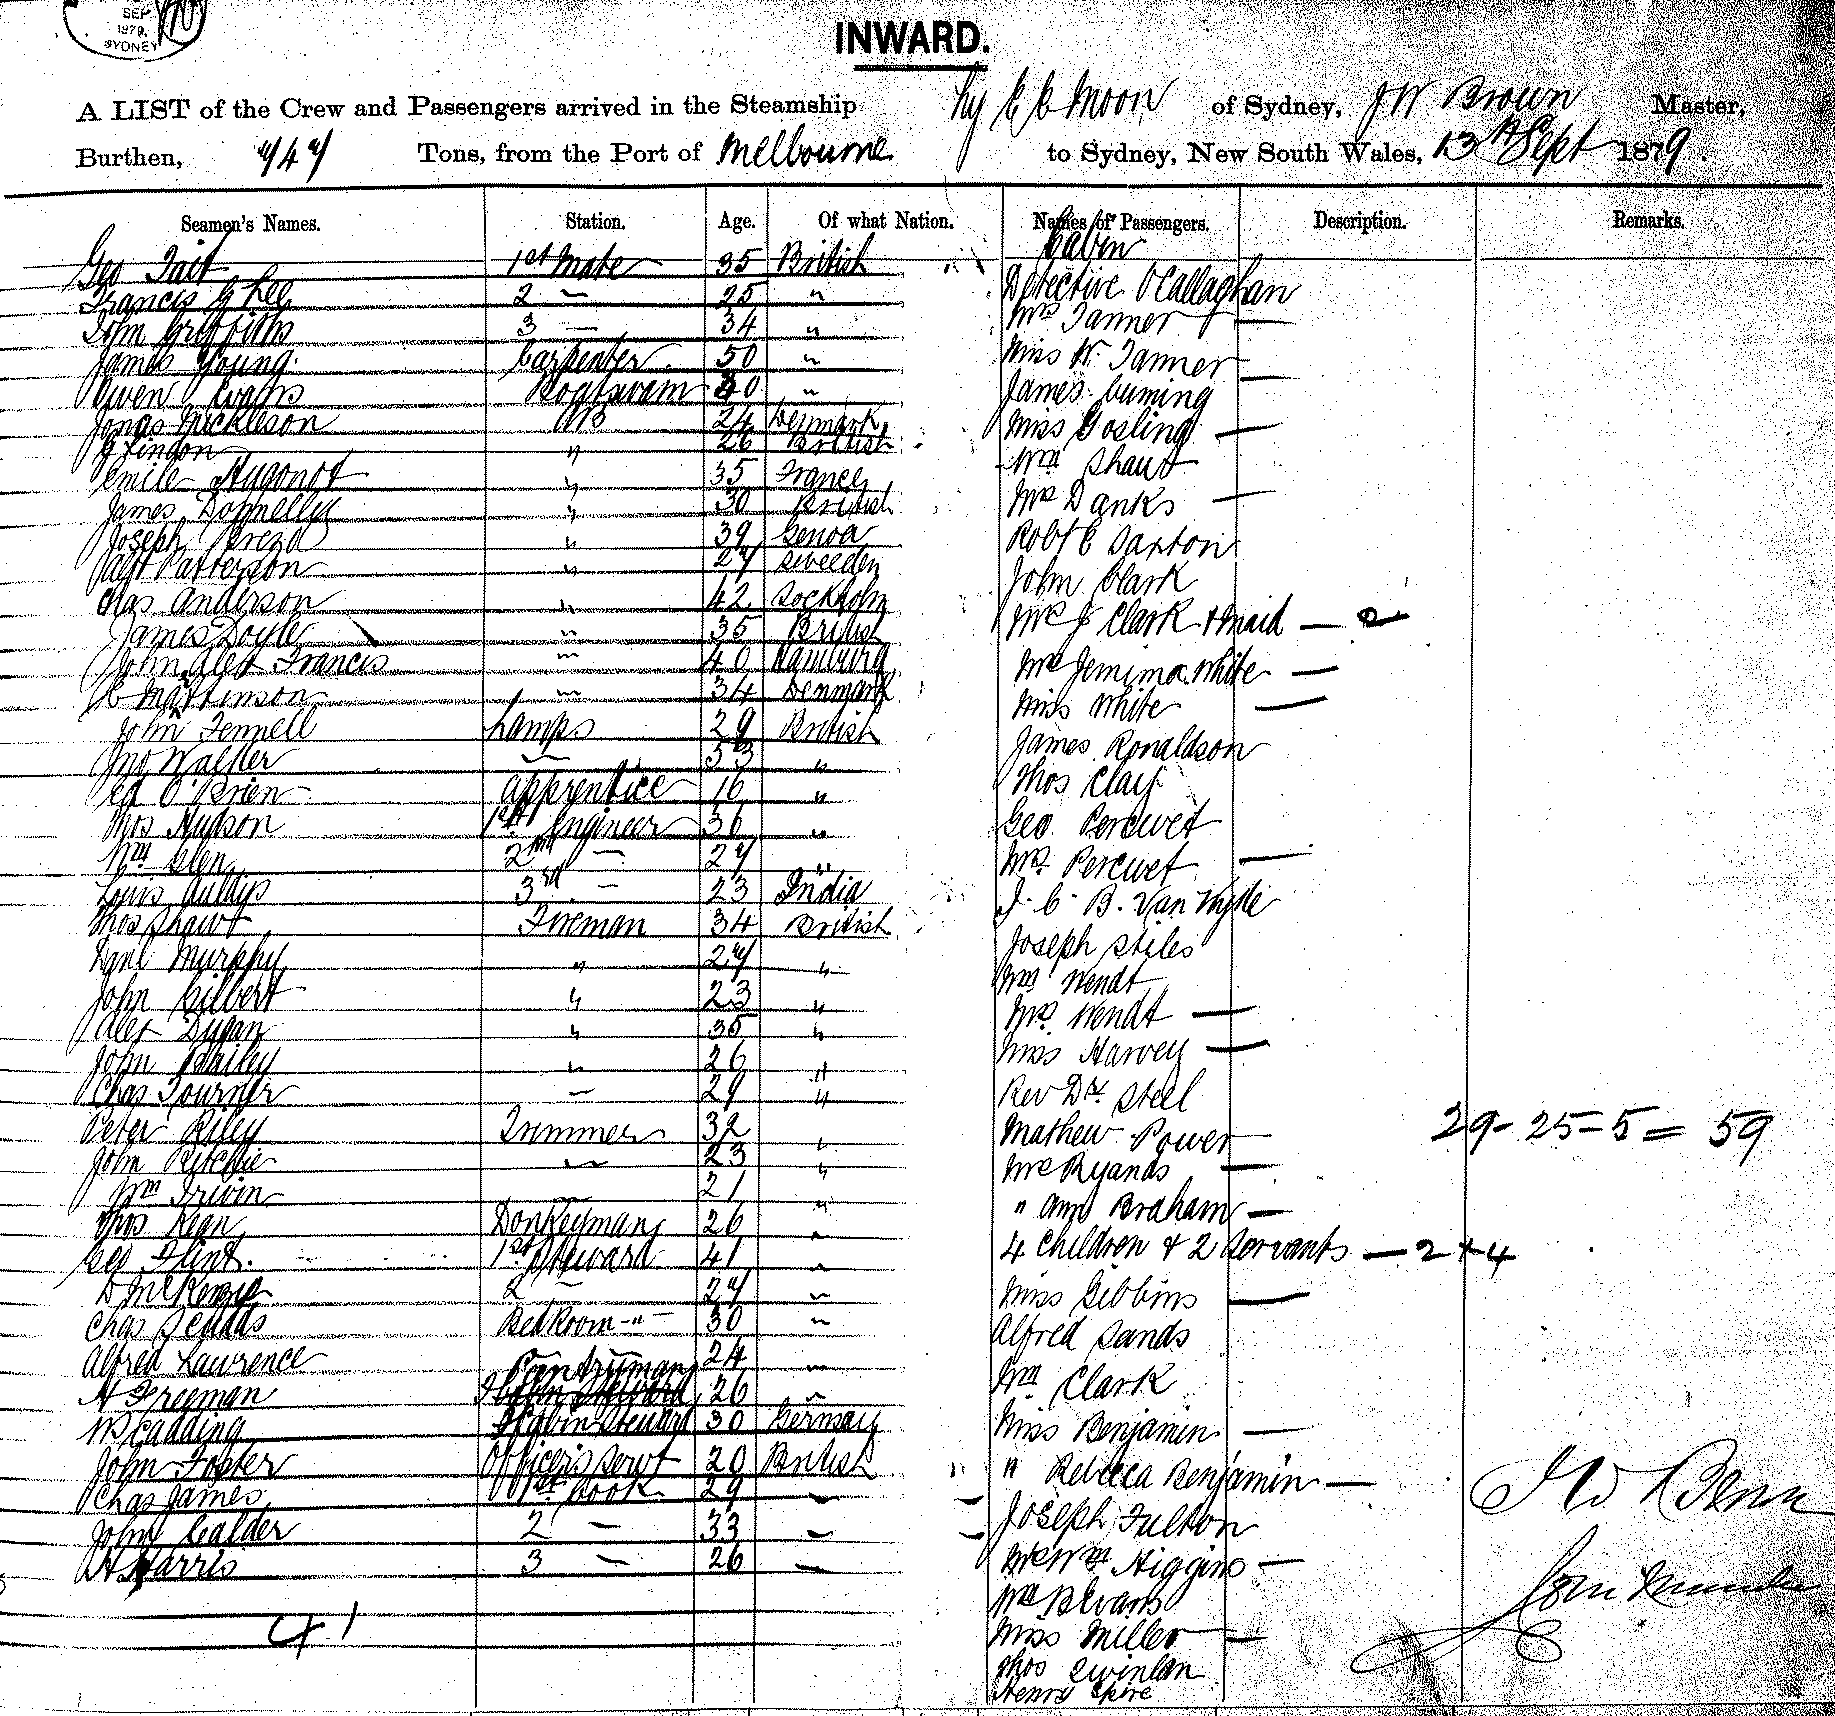 SEP
1879.
SYDNEY
INWARD.
A LIST of the Crew and Passengers arrived in the Steamship Ly E E Moon of Sydney, J W Brown Master,
Burthen, Tons, from the Port of Melbourne to Sydney, New South Wales, 13th Sept 1879.
Seamen's Names. Station. Age. Of what Nation. Names of Passengers. Description. Remarks.
Cabin
Geo Tait 1st Mate 35 British
Francis G Lee 2 — 25 " Detective O'Callaghan
John Griffiths 3 — 34 " Mrs Tanner —
James Young Carpenter 50 " Miss W. Tanner —
Owen Evans Boatswain 40 " James Cuming
Jonas Mickleson AB 24 Denmark Miss Gosling —
G Lindon " 26 British Wm Shaw
Emile Hugonot " 35 France Mrs Danks —
James Donnelly " 30 British Robt E Saxton
Joseph " 39 Genoa John Clark
Alft Patterson " 27 Sweeden Mrs J Clark & Maid — 2
Chas Anderson " 42 Sockholm
James Doyle " 35 British Mrs Jemima White —
John Alex Francis " 40 Hamburg Miss White —
C Mattinson " 34 Denmark James Ronaldson
John Fennell Lamps 29 British Thos Clay
Jno Walker — 33 "
Ed O'Brien apprentice 16 " Geo Percwet
Thos Hudson 1st Engineer 36 " Mrs Percwet —
Wm Glen 2nd — 27 "
Louis 3rd — 23 India J. C. B. Van
Thos Shaw Fireman 34 British Joseph Stiles
Danl Murphy " 27 " Wm Wendt
John Gilbert " 23 " Mrs Wendt —
Alex Dugan " 35 " Miss Harvey —
John Bailey " 26 " Rev Dr Steel
Chas Tourner — 29 " Mathew Power 29 - 25 - 5 = 59
Peter Riley Trimmer 32 " Mrs Ryands —
John Ritchie — 23 " " Ann Braham —
Wm Irwin — 21 " 4 Children & 2 Servants — 2 + 4
Thos Kean Donkeyman 26 "
Geo Flint 1st Steward 41 " Miss Gibbins —
D McKenzie 2 — 27 " Alfred Sands
Chas Bedroom " 30 " Wm Clark
Alfred Lawrence Pantryman 24 " Miss Benjamin —
H Freeman 26 " " Rebecca Benjamin —
W Scadding Cabin Steward 30 Germany Joseph Fulton
John Foster Officers Servt 20 British Mrs Wm Higgins —
Chas James 1st Cook 29 " Wm B Evans
John Calder 2 — 33 " Miss Miller —
H Harris 3 — 26 " Thos Quinlan
41 Henry